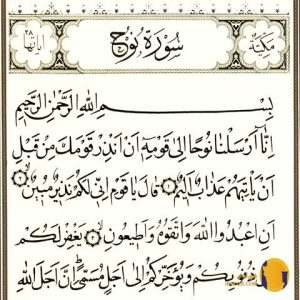 مكية سورة نوح آياتها ٢٨
بِسْمِ اللهِ الرَّحْمٰنِ الرَّحِيْمِ
إِنَّا أَرْسَلْنَا نُوحًا إِلَىٰ قَوْمِهِ أَنْ أَنذِرْ قَوْمَكَ مِن قَبْلِ
أَن يَأْتِيَهُمْ عَذَابٌ أَلِيمٌ ١ قَالَ يَا قَوْمِ إِنِّي لَكُمْ نَذِيرٌ مُّبِينٌ ٢
أَنِ اعْبُدُوا اللهَ وَاتَّقُوهُ وَأَطِيعُونِ ٣ يَغْفِرْ لَكُم
ذُنُوبِكُمْ وَيُؤَخِّرْكُمْ إِلَىٰ أَجَلٍ مُّسَمًّى إِنَّ أَجَلَ اللهِ